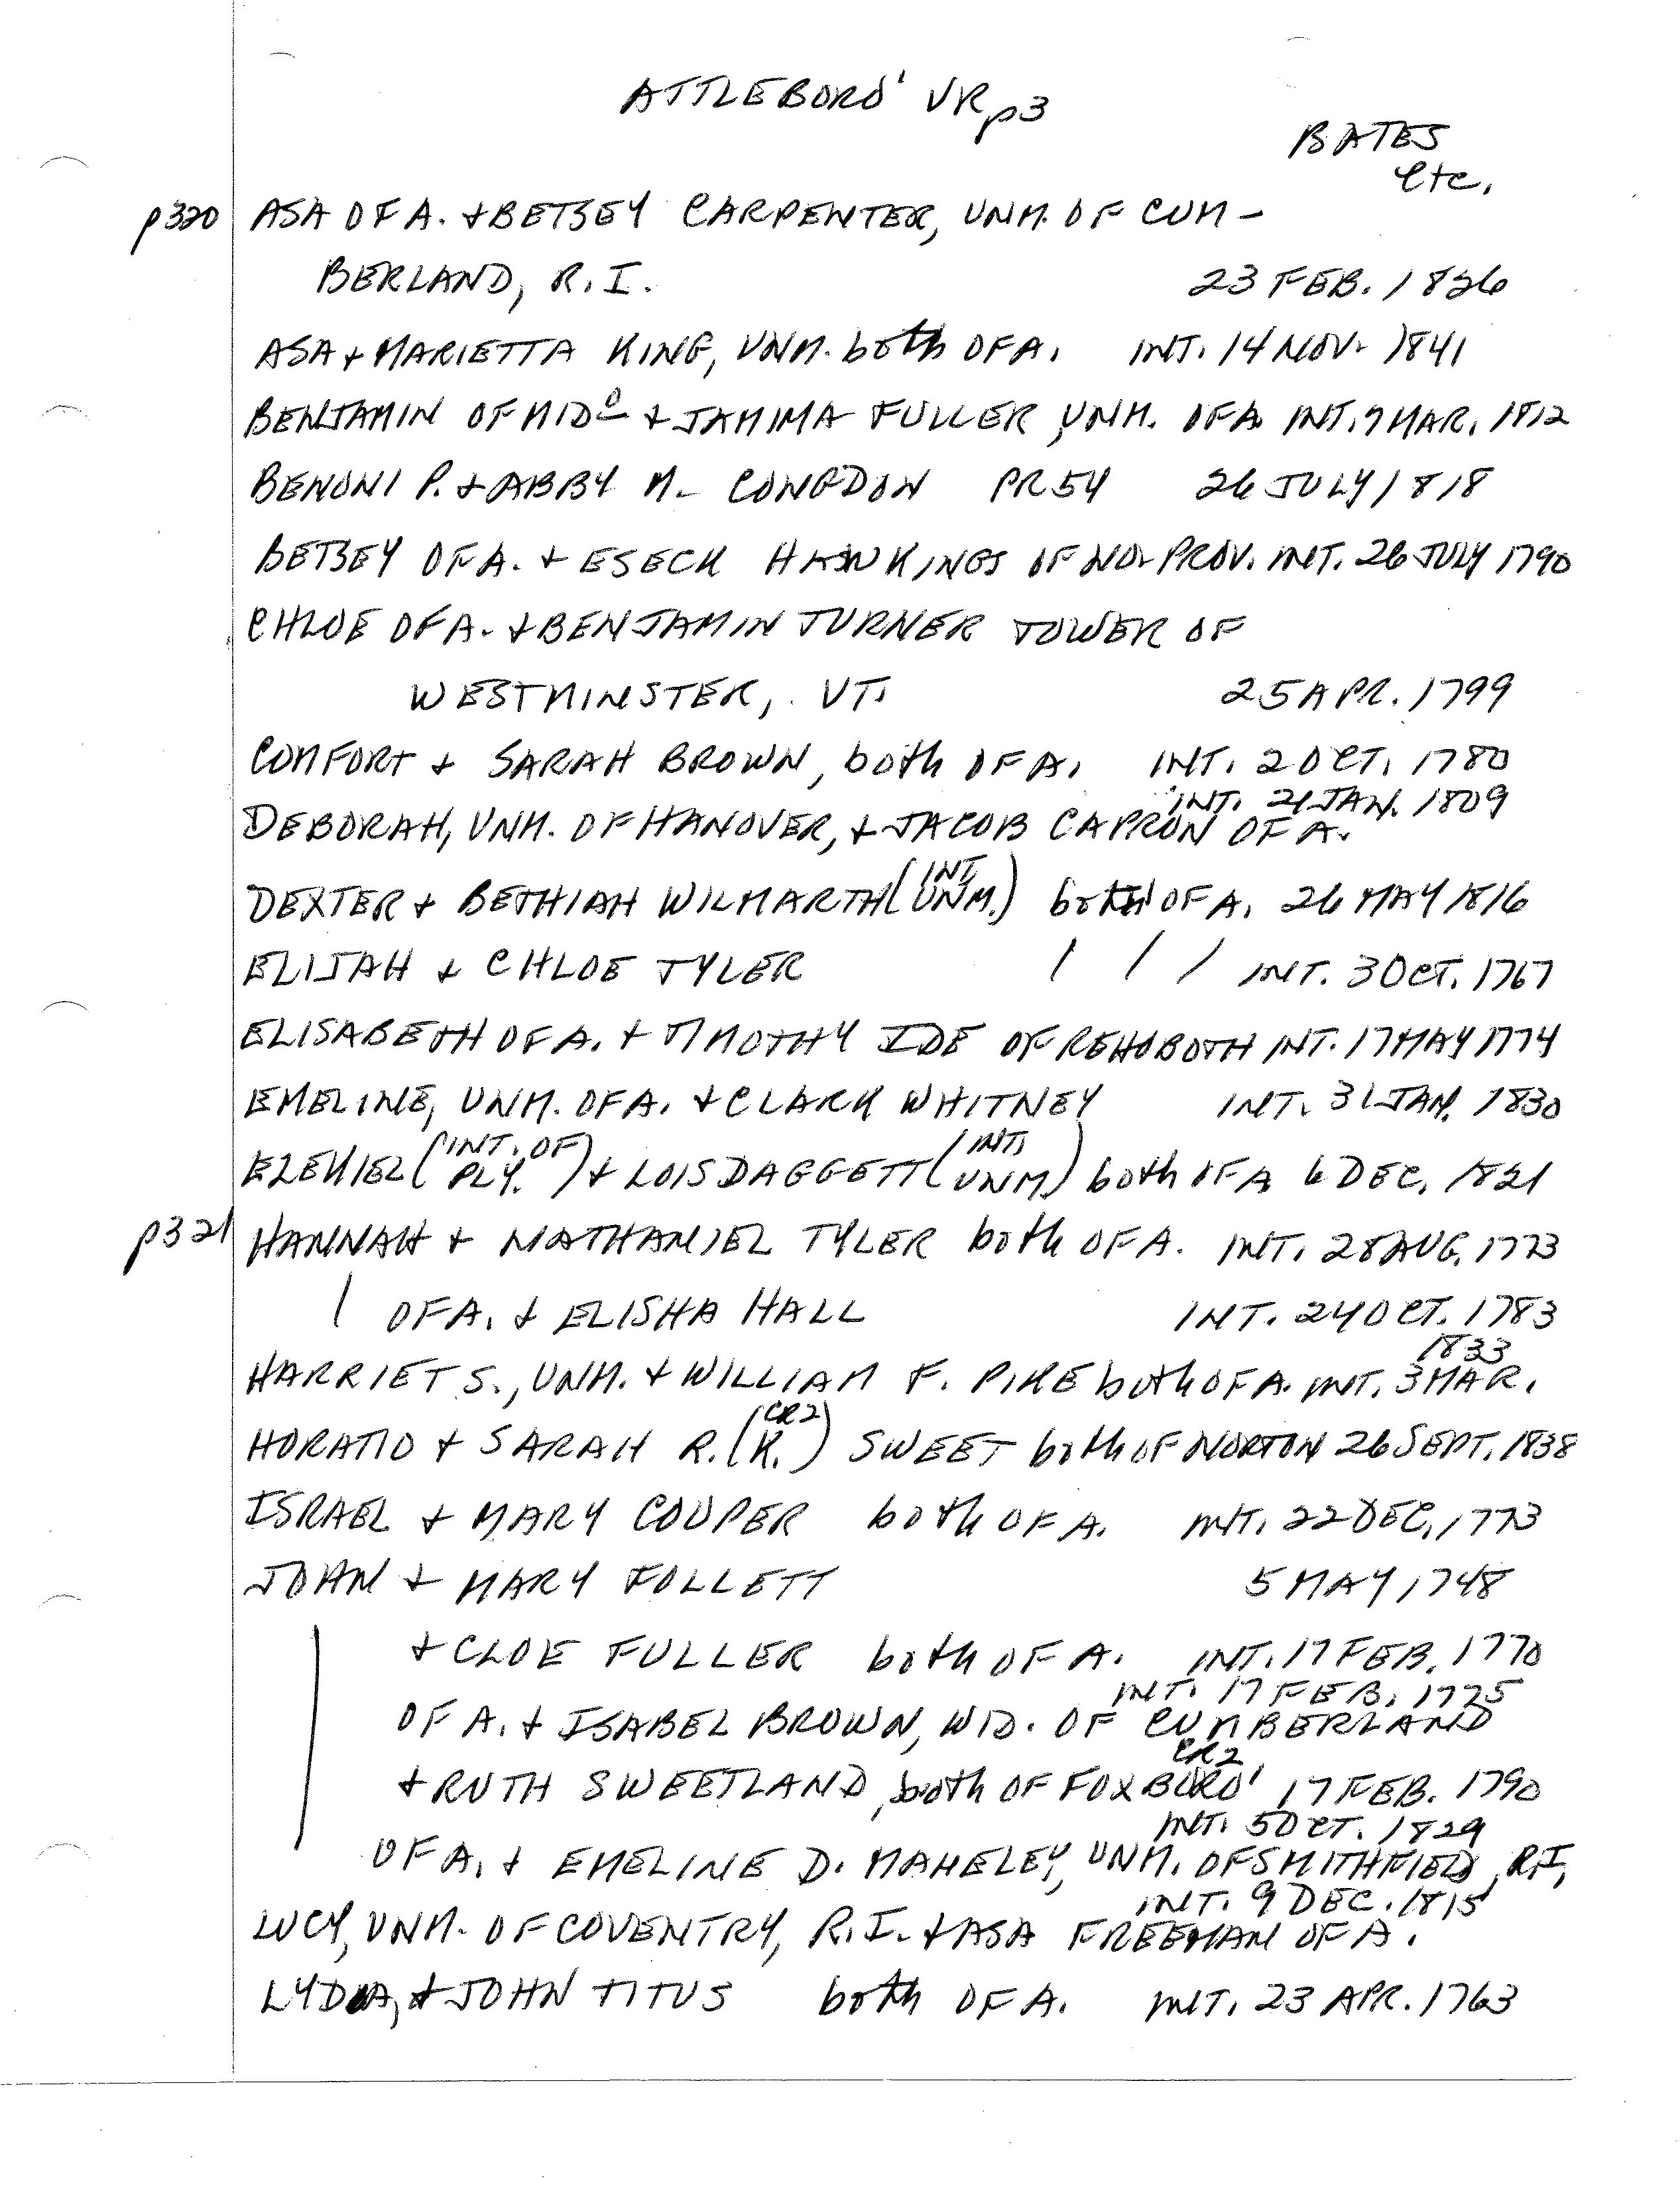 ATTLEBORO' VR p3
BATES
etc.
p320 ASA OF A. + BETSEY CARPENTER, UNM. OF CUM-
BERLAND, R.I. 23 FEB. 1826
ASA + MARIETTA KING, UNM. both OF A. INT. 14 NOV. 1841
BENJAMIN OF MIDO + JAMIMA FULLER, UNM. OF A. INT. 9 MAR. 1812
BENONI P. + ABBY M. CONGDON PR54 26 JULY 1818
BETSEY OF A. + ESECK HAWKINGS OF NO. PROV. INT. 26 JULY 1790
CHLOE OF A. + BENJAMIN TURNER TOWER OF
WESTMINSTER, VT. 25 APR. 1799
COMFORT + SARAH BROWN, both OF A. INT. 2 OCT. 1780
INT. 21 JAN. 1809
DEBORAH, UNM. OF HANOVER, + JACOB CAPRON OF A.
DEXTER + BETHIAH WILMARTH (INT. UNM.) both OF A. 26 MAY 1816
ELIJAH + CHLOE TYLER / / / INT. 3 OCT. 1767
ELISABETH OF A. + TIMOTHY IDE OF REHOBOTH INT. 17 MAY 1774
EMELINE, UNM. OF A. + CLARK WHITNEY INT. 31 JAN. 1830
EZEKIEL (INT. OF PLY.) + LOIS DAGGETT (INT. UNM.) both OF A. 6 DEC. 1821
p321 HANNAH + NATHANIEL TYLER both OF A. INT. 28 AUG. 1773
| OF A. + ELISHA HALL INT. 24 OCT. 1783
1833
HARRIET S., UNM. + WILLIAM F. PIKE both OF A. INT. 3 MAR.
HORATIO + SARAH R. (CR2 K.) SWEET both OF NORTON 26 SEPT. 1838
ISRAEL + MARY COOPER both OF A. INT. 22 DEC. 1773
JOHN + MARY FOLLETT 5 MAY 1748
+ CLOE FULLER both OF A. INT. 17 FEB. 1770
INT. 17 FEB. 1775
OF A. + ISABEL BROWN, WID. OF CUMBERLAND
CR2
+ RUTH SWEETLAND, both OF FOXBORO' 17 FEB. 1790
INT. 5 OCT. 1829
OF A. + EMELINE D. MAHELEY, UNM. OF SMITHFIELD, R.I.
INT. 9 DEC. 1815
LUCY, UNM. OF COVENTRY, R.I. + ASA FREEMAN OF A.
LYDIA, + JOHN TITUS both OF A. INT. 23 APR. 1763